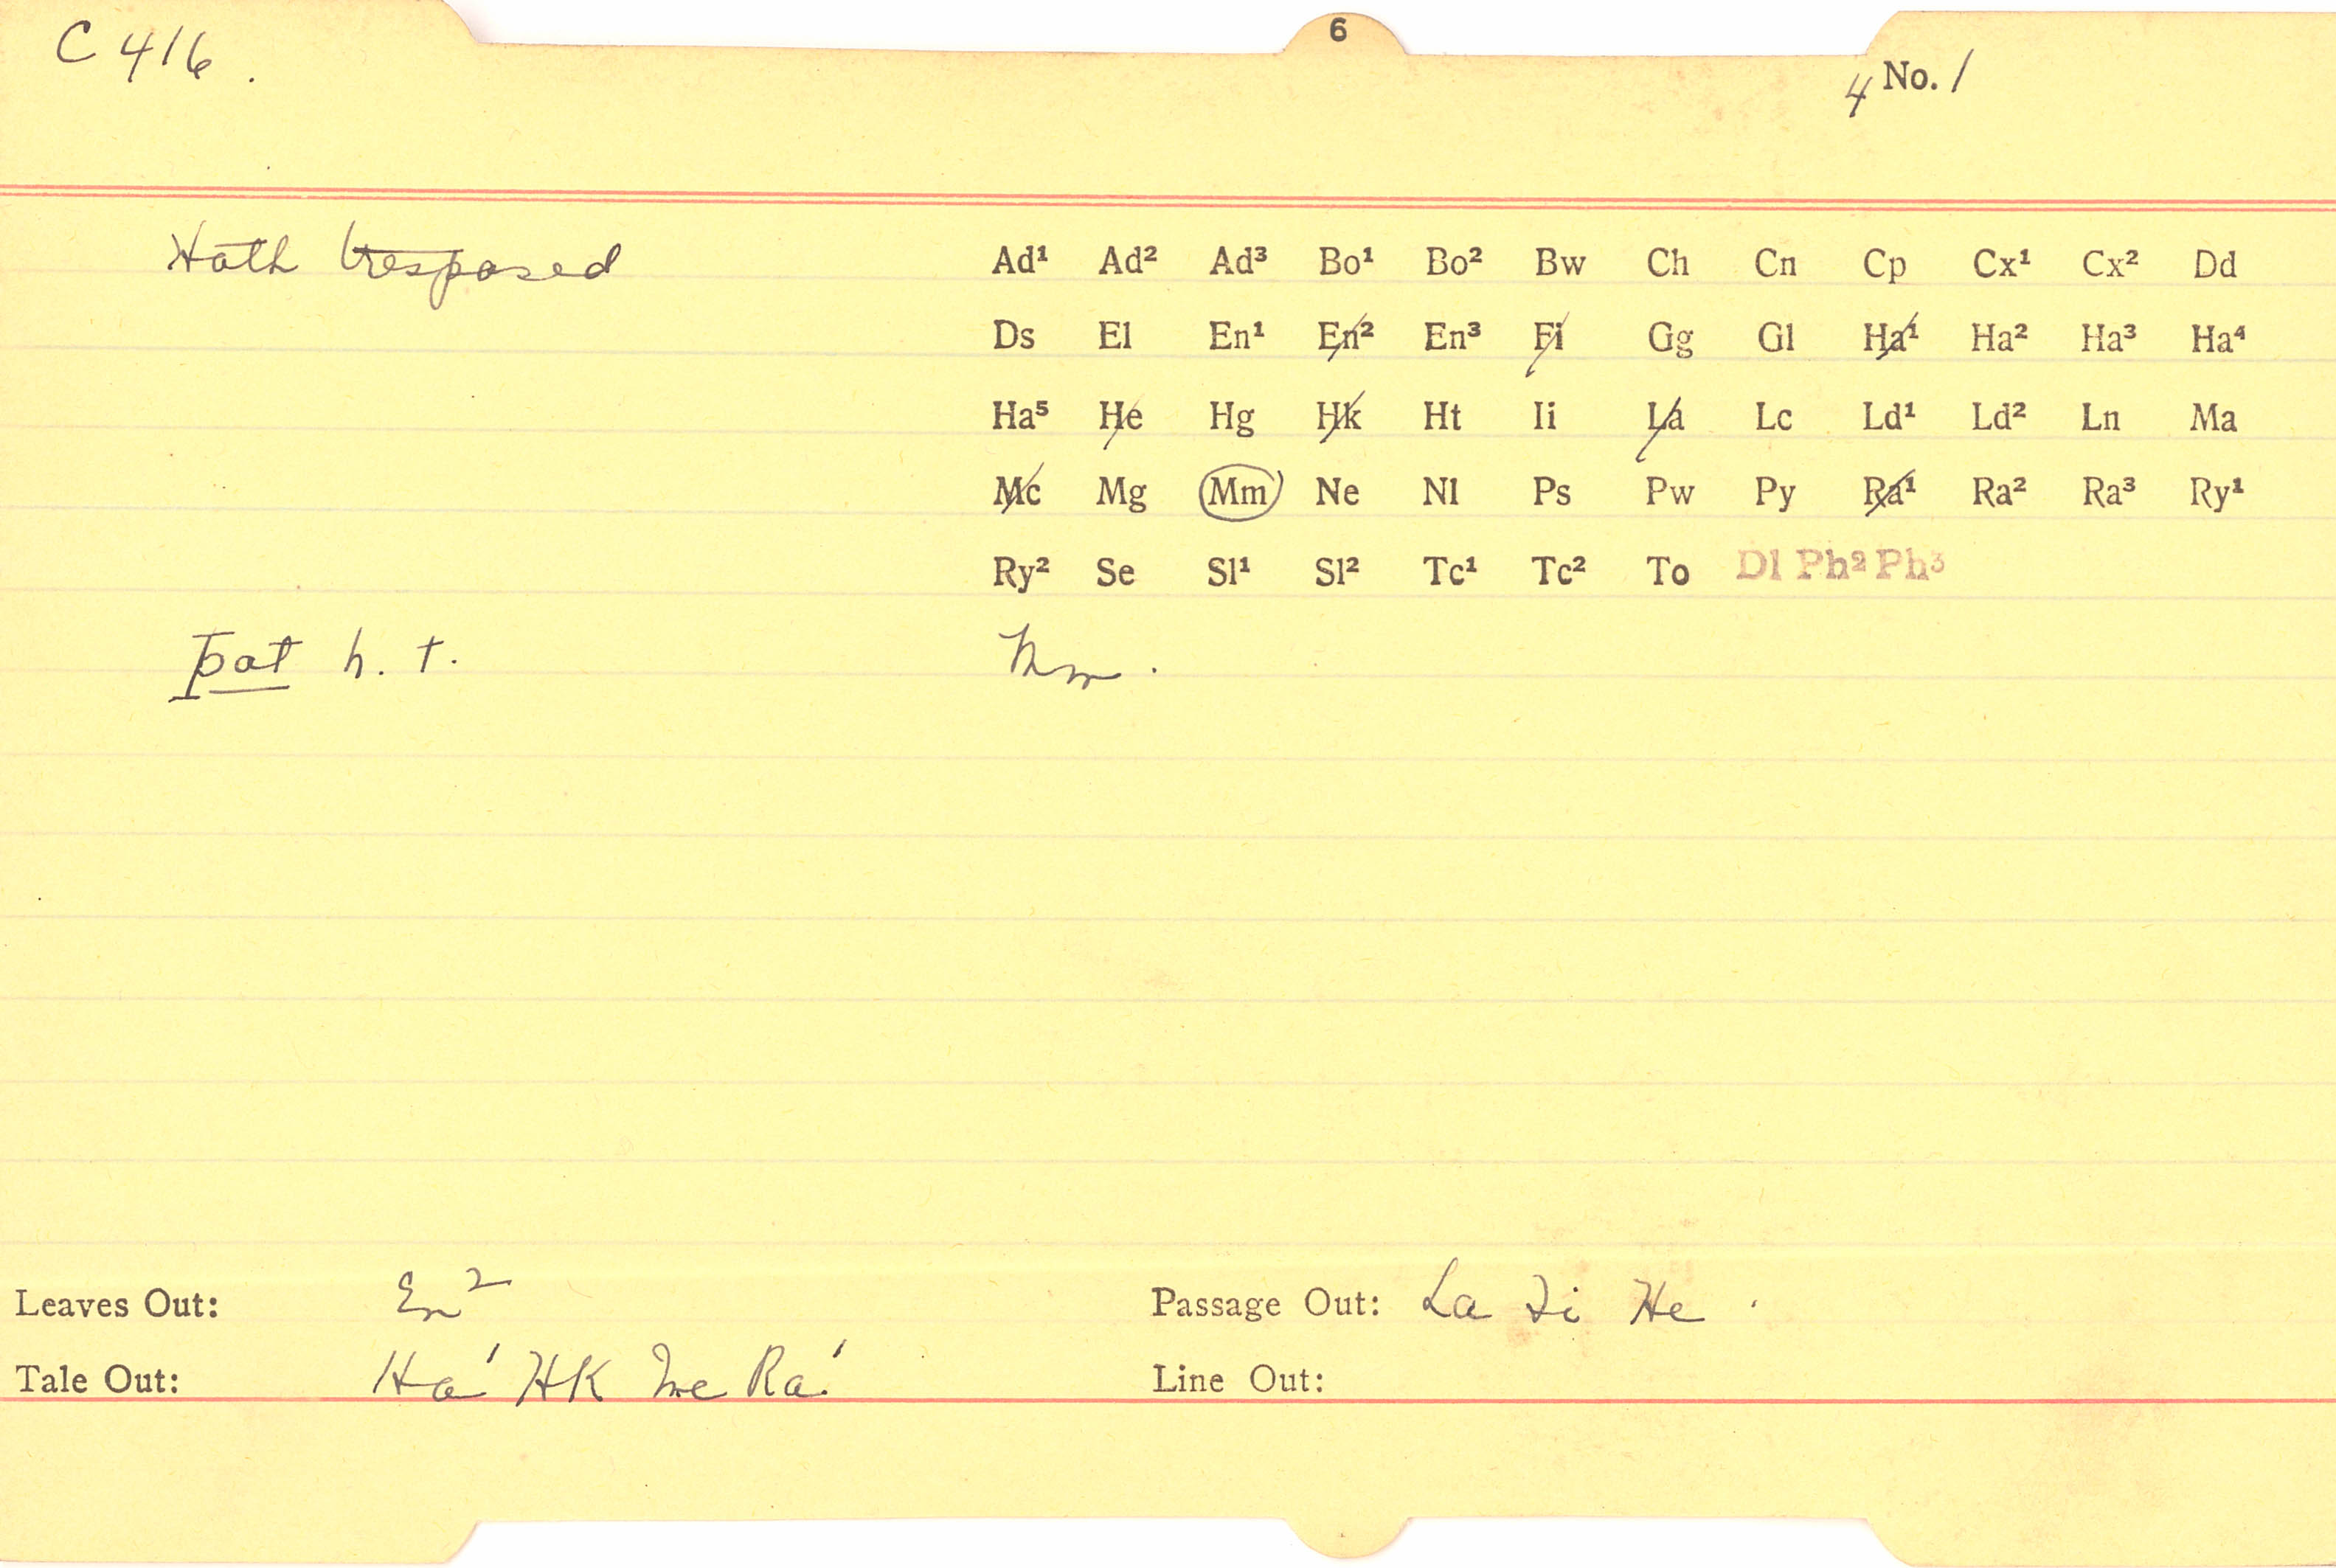 C 416.
6
4 No. 1
Hath trespased
Ad¹ Ad² Ad³ Bo¹ Bo² Bw Ch Cn Cp Cx¹ Cx² Dd
Ds El En¹ En² En³ Fi Gg Gl Ha¹ Ha² Ha³ Ha⁴
Ha⁵ He Hg Hk Ht Ii La Lc Ld¹ Ld² Ln Ma
Mc Mg Mm Ne Nl Ps Pw Py Ra¹ Ra² Ra³ Ry¹
Ry² Se Sl¹ Sl² Tc¹ Tc² To Dl Ph² Ph³
þat h. t. Mm.
Leaves Out: En² Passage Out: La Fi He.
Tale Out: Ha¹ HK Mc Ra¹ Line Out: